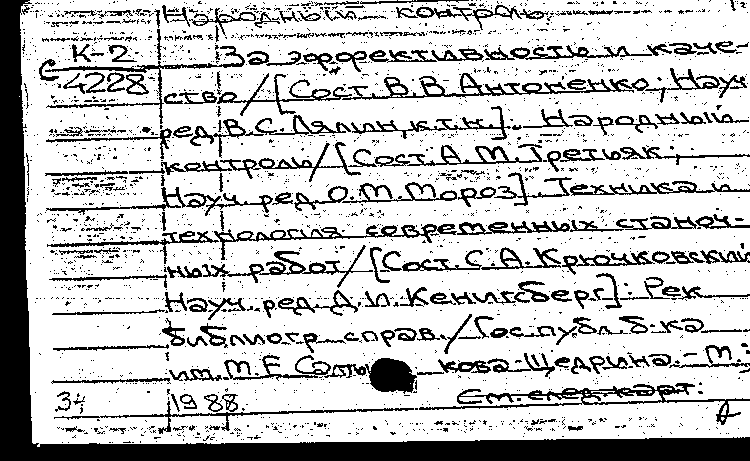 Народный контроль
К-2 За эффективность и каче-
С 4228 ство/[Сост. В.В Антоненко; Науч
ред. В.С. Лялин, к.т.н.]. Народный
контроль/[Сост. А.М. Третьяк;
Науч. ред. О.М. Мороз]. Техника и
технология современных станоч-
ных работ/[Сост. С.А. Крючковский
Науч. ред. Д.И. Кенигсберг]: Рек
библиогр. справ./Гос. публ. б-ка
им. М.Е Салты кова-Щедрина. - М.:
34 1988.
См. след. карт.